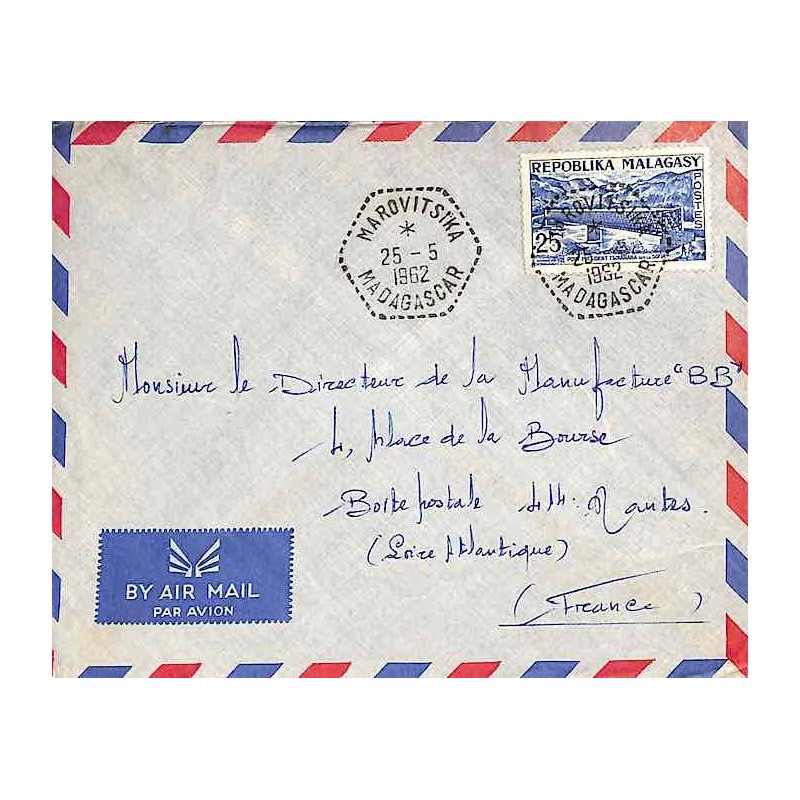 REPOBLIKA MALAGASY
POSTES
25
MAROVITSIKA
25 - 5
1962
MADAGASCAR
MAROVITSIKA
25 - 5
1962
MADAGASCAR
Monsieur le Directeur de la Manufacture "BB"
4, place de la Bourse
Boite postale 44. Nantes.
(Loire Atlantique)
(France)
BY AIR MAIL
PAR AVION